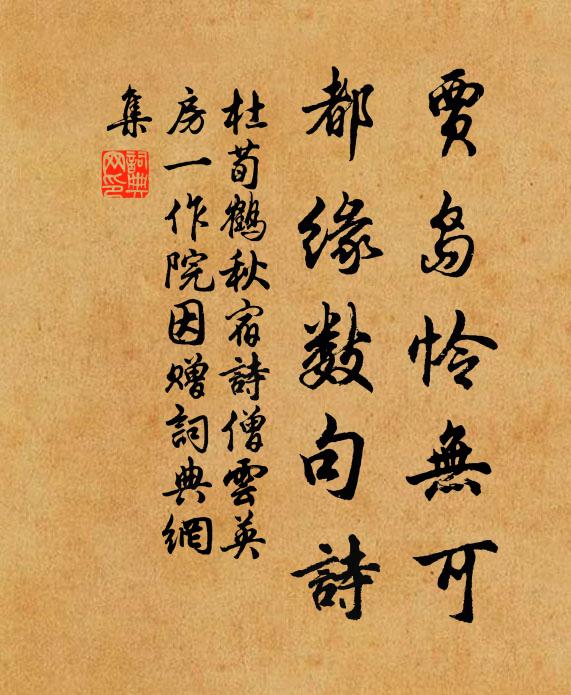 賈島怜無可
都緣数句詩
杜荀鶴秋宿詩僧雲英
房一作院因贈詞典網
集
詞典網印